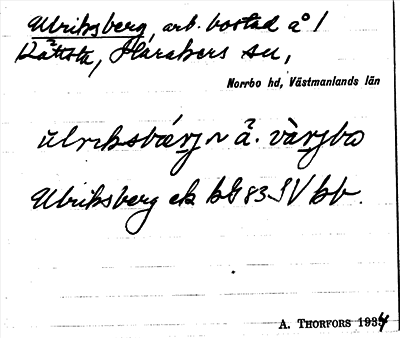 Ulriksberg, arb. bostad å /
Råttsta, Harakers sn,
Norrbo hd, Västmanlands län
ulriksbærj ~ å. värjbo
Ulriksberg ek bG 83 SV kb.
A. THORFORS 1934